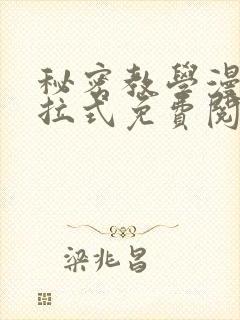 秘密教學漫
拉式免費閱
梁兆昌